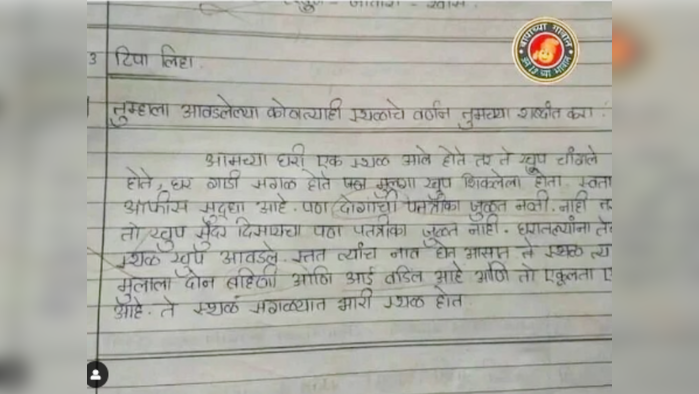 वापाच्या गावान
३ टिपा लिहा.
तुम्हाला आवडलेल्या कोणत्याही स्थळाचे वर्णन तुमच्या शब्दांत करा :
आमच्या घरी एक स्थळ आले होते तर ते खुप चांगले
होते, घर गाडी सगळ होते पण मुलगा खुप शिकलेला होता. स्वता
ऑफीस सुद्धा आहे. पण दोगांची पतत्रीका जुळत नव्ती. नाही त
तो खुप सुंदर दिसायचा पण पतत्रीका जुळत नाही. घरातल्यांना ते
स्थळ खुप आवडले. सतत त्यांच नाव घेत आसत ते स्थळ त्या
मुलाला दोन बहिणी आणि आई वडिल आहे आणि तो एकुलता ए
आहे. ते स्थळं सगळ्यात भारी स्थळ होत.